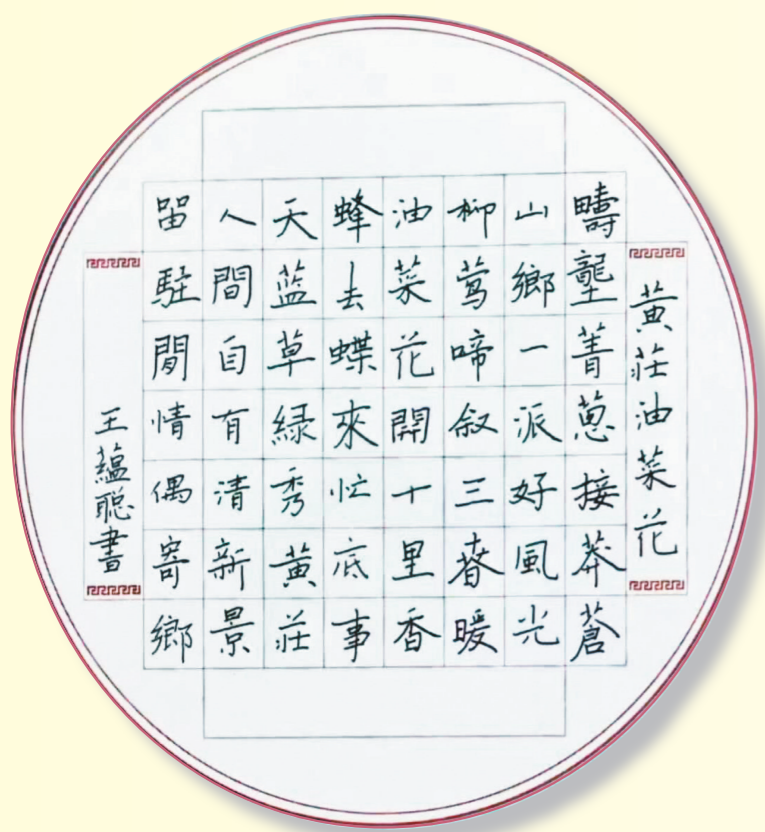 黃莊油菜花
疇壟菁蔥接莽蒼
山鄉一派好風光
柳莺啼叙三春暖
油菜花開十里香
蜂去蝶來忙底事
天蓝草緑秀黃莊
人間自有清新景
留駐閒情偶寄鄉
王蕴聪書